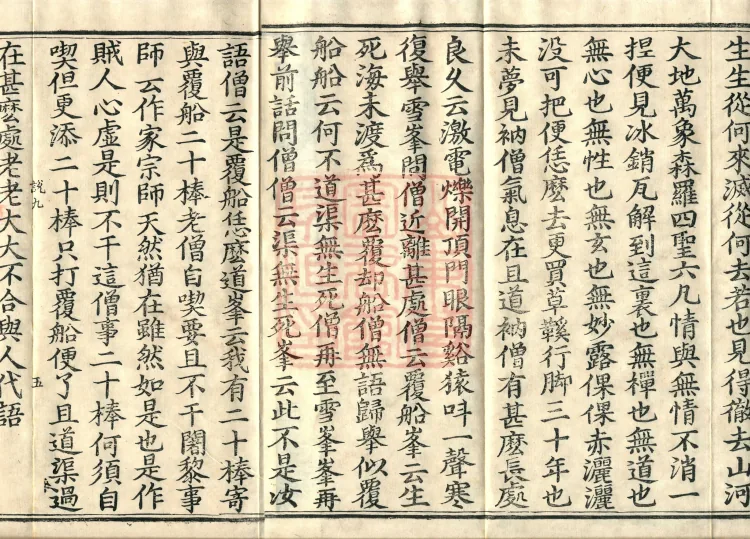 生生從何來滅從何去若也見得徹去山河
大地萬象森羅四聖六凡情與無情不消一
捏便見冰銷瓦解到這裏也無禪也無道也
無心也無性也無玄也無妙露倮倮赤灑灑
没可把便恁麽去更買草鞵行脚三十年也
未夢見衲僧氣息在且道衲僧有甚麽長處
良久云激電爍開頂門眼隔谿猿呌一聲寒
復舉雪峯問僧近離甚處僧云覆船峯云生
死海未渡爲甚麽覆却船僧無語歸舉似覆
船船云何不道渠無生死僧再至雪峯峯再
舉前話問僧僧云渠無生死峯云此不是汝
語僧云是覆船恁麽道峯云我有二十棒寄
與覆船二十棒老僧自喫要且不干闍黎事
師云作家宗師天然猶在雖然如是也是作
賊人心虛是則不干這僧事二十棒何須自
喫但更添二十棒只打覆船便了且道渠過
説九
五
在甚麽處老老大大不合與人代語